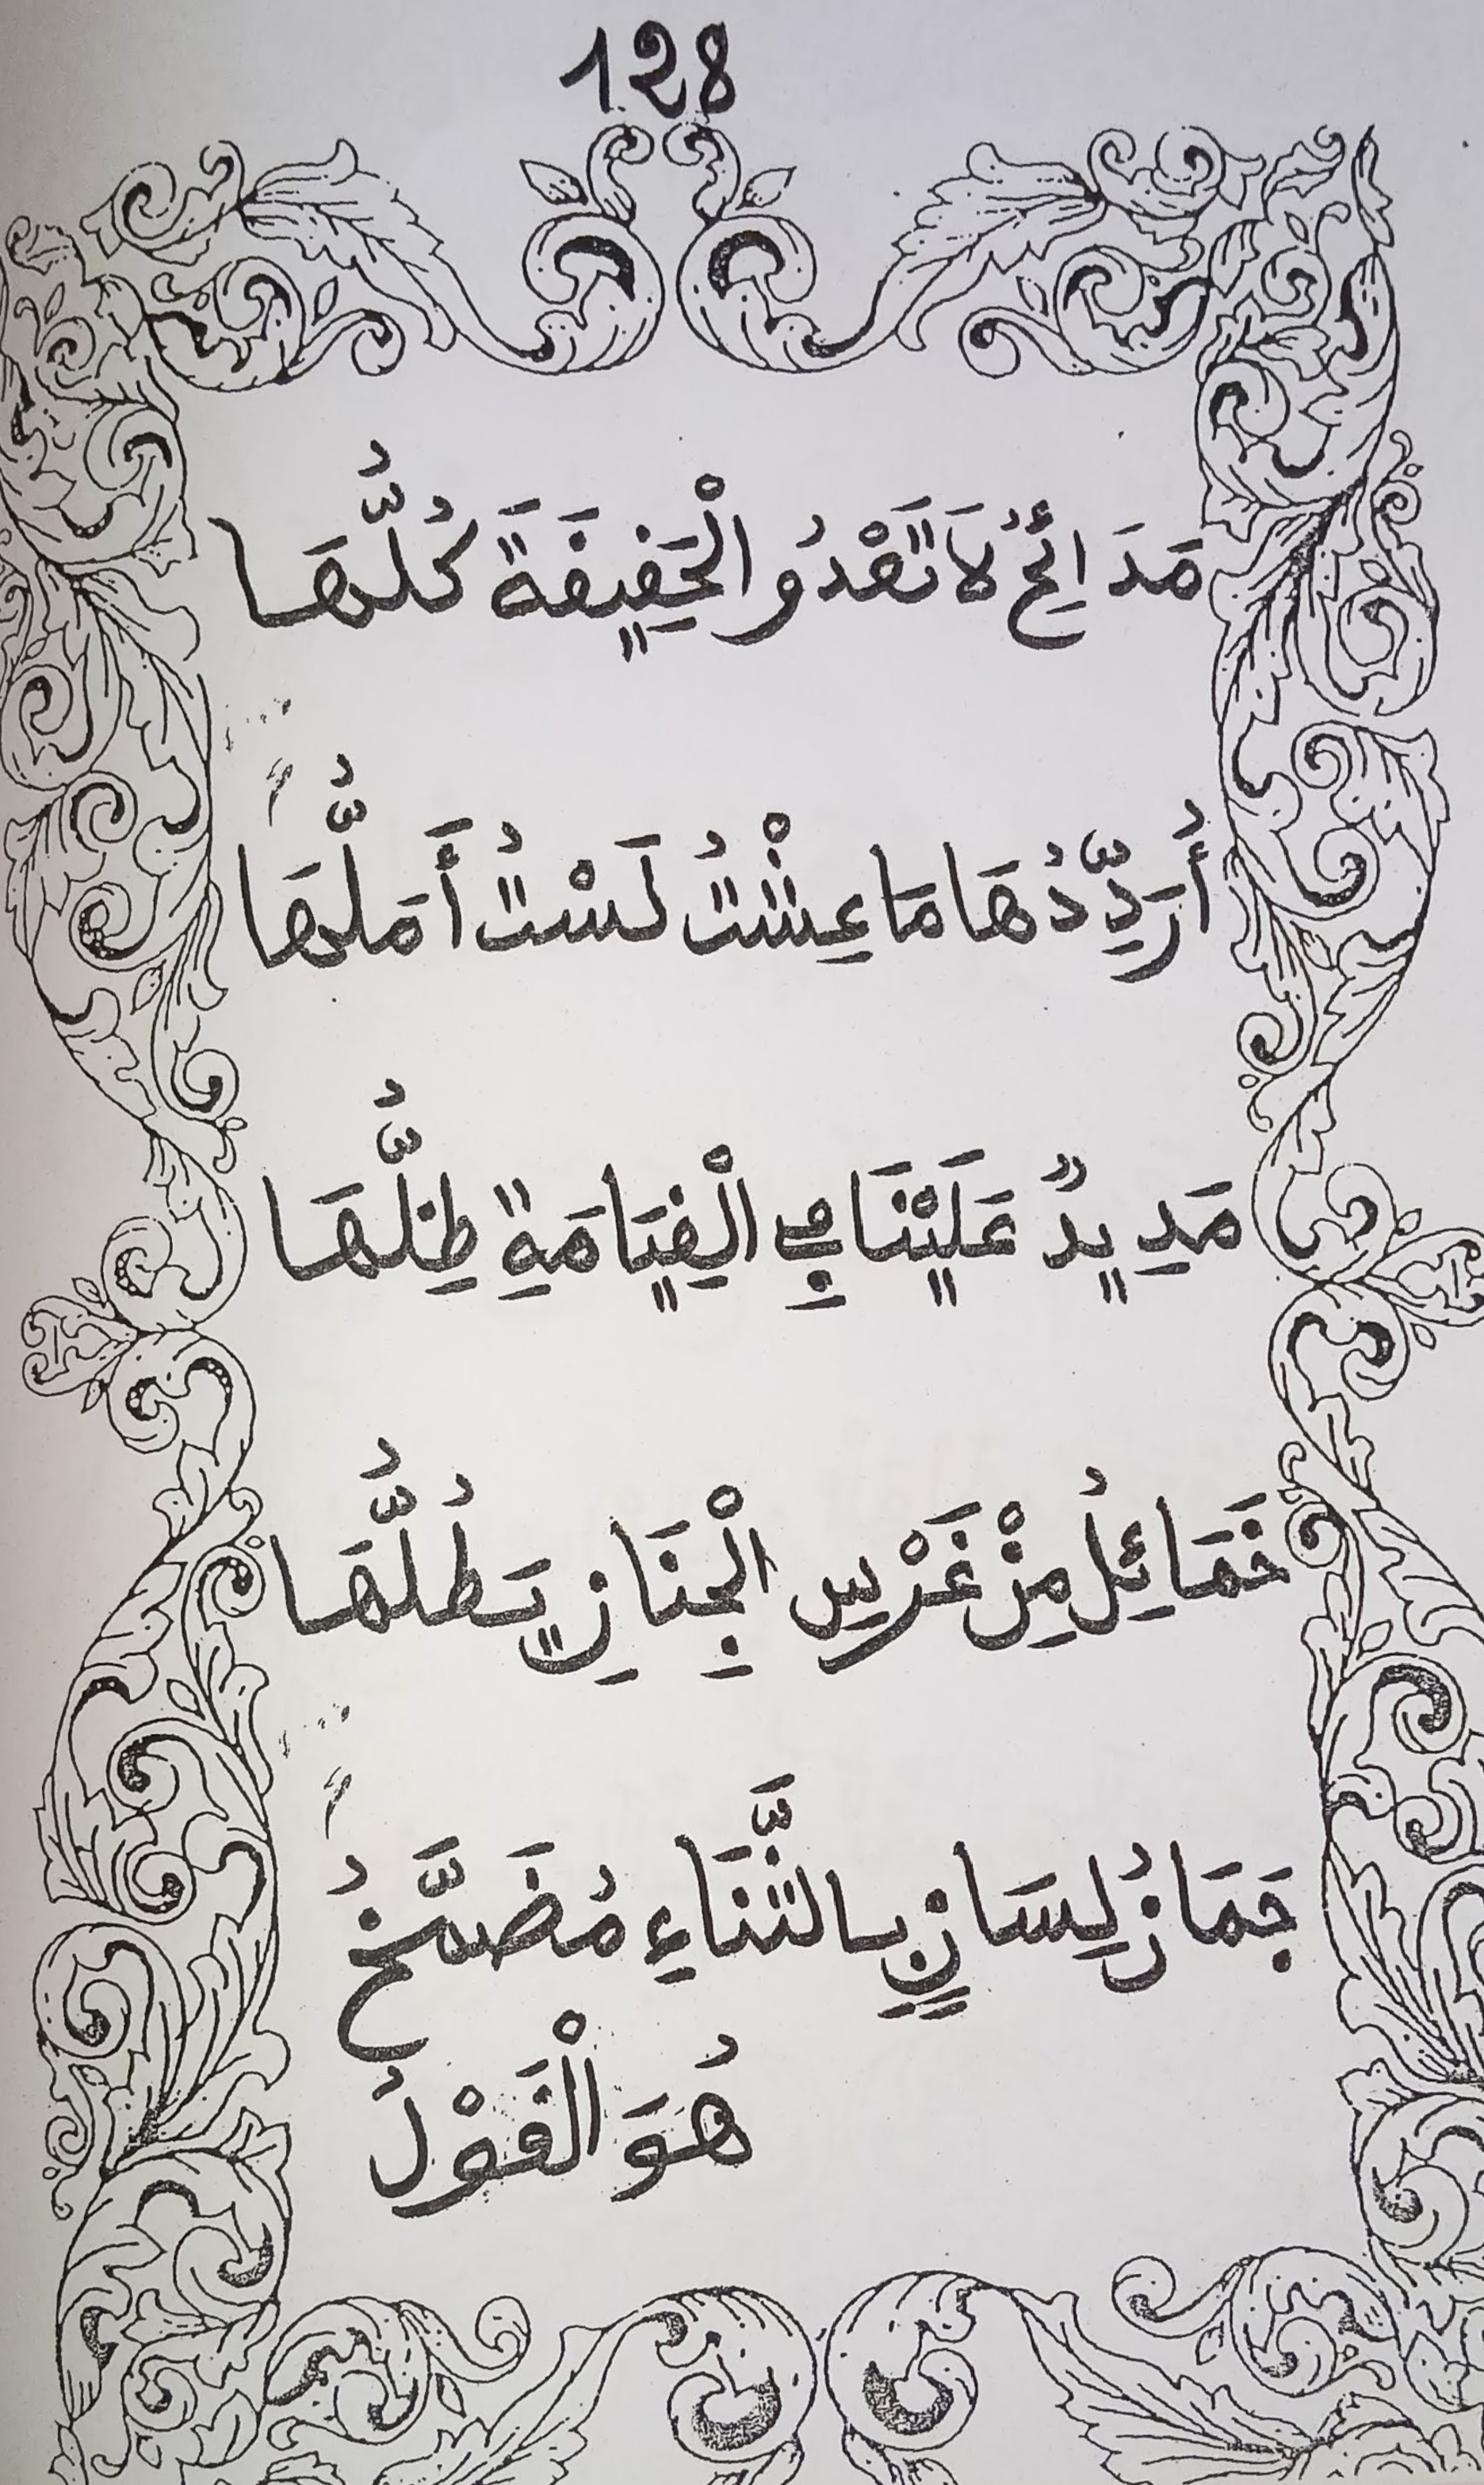 128
مَدَائِحُ لاَ تَعْدُو الْحَقِيقَةَ كُلُّهَا
أُرَدِّدُهَا مَا عِشْتُ لَسْتُ أَمَلُّهَا
مَدِيدٌ عَلَيْنَا فِي الْقِيَامَةِ ظِلُّهَا
خَمَائِلُ مِنْ غَرْسِ الْجِنَانِ يَطُلُّهَا
جَمَانُ لِسَانٍ بِالثَّنَاءِ مُضَمَّخُ
هُوَ الْقَوْلُ